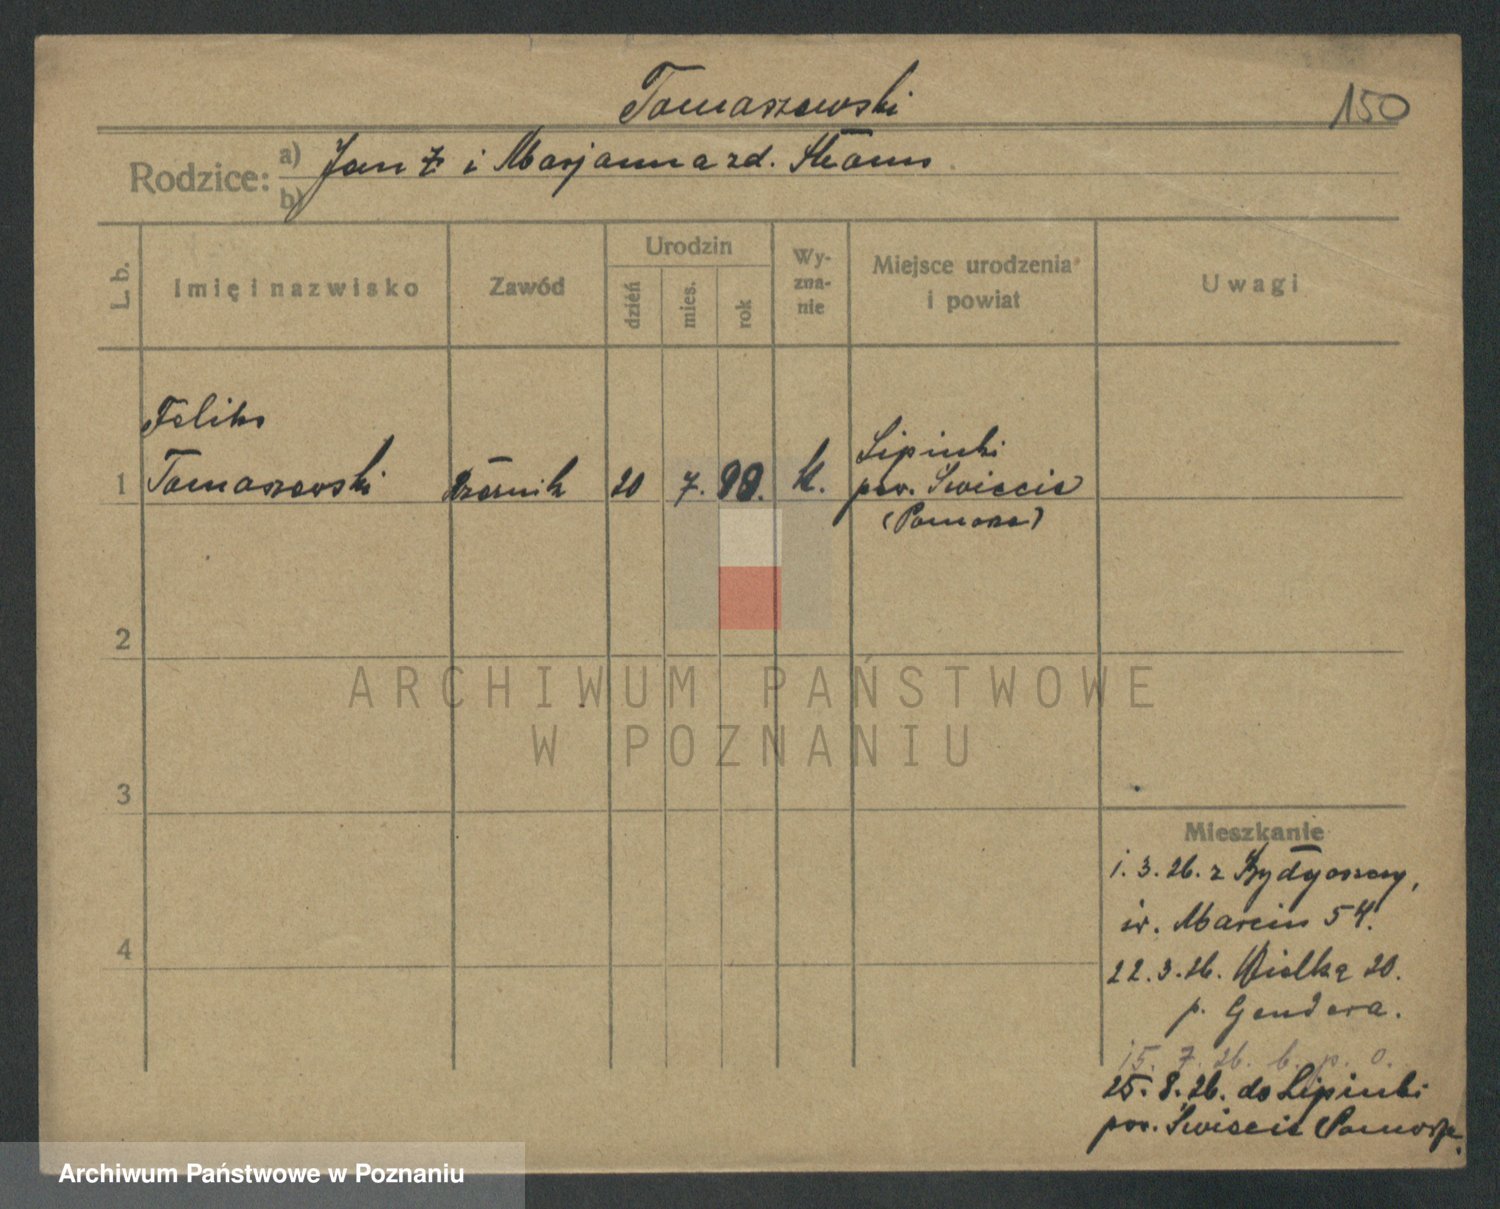 Tomaszewski
150
Rodzice: a) Jan ż i Marjanna zd. Stamm
b)
L. b. Imię i nazwisko Zawód Urodzin dzień mies. rok Wy-zna-nie Miejsce urodzenia i powiat Uwagi
Feliks
1 Tomaszewski Rzeźnik 20 7. 99. k. Lipinki
pow. Świecie
(Pomorze)
2
ARCHIWUM PAŃSTWOWE
W POZNANIU
3
Mieszkanie
1. 3. 26. z Bydgoszczy,
św. Marcin 54.
4
22. 3. 26. Wielka 20.
p. Gendera.
15. 7. 26. b. p. o.
25. 8. 26. do Lipinki
pow. Świecie Pomorze.
Archiwum Państwowe w Poznaniu